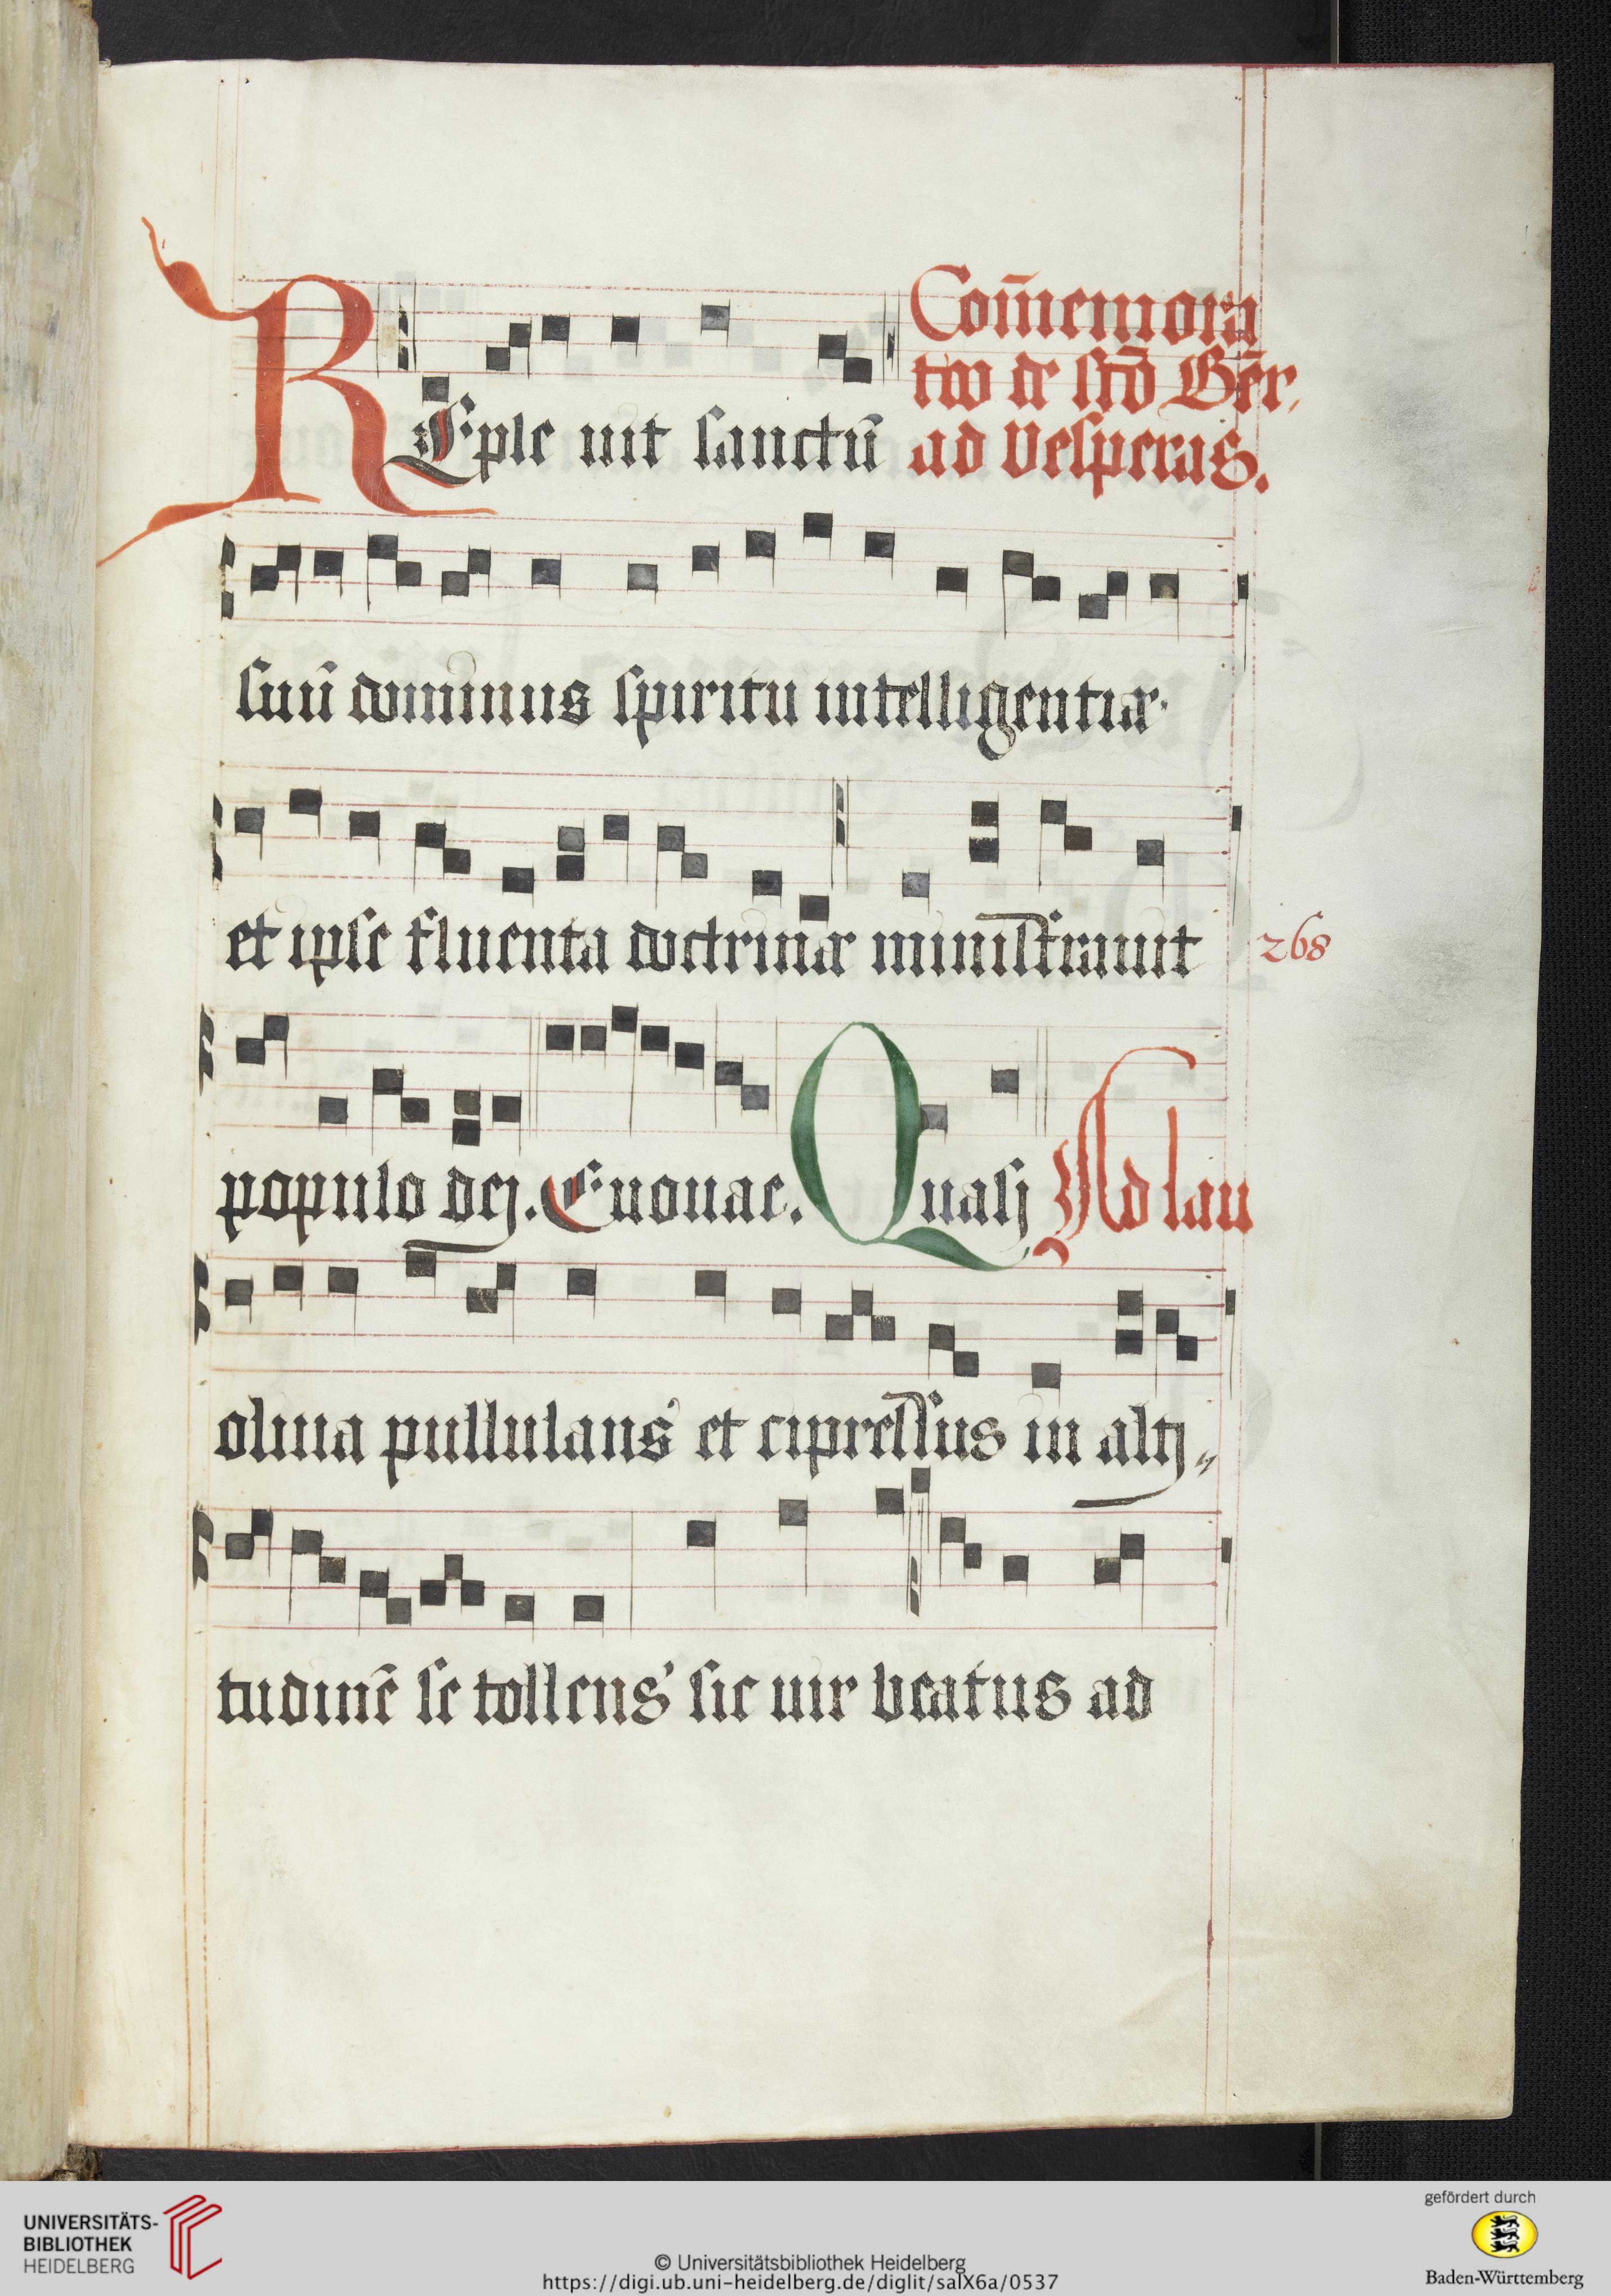 Com̄emora
tio de scō Bēr.
REple uit sanctū ad vesperas.
suū dominus spiritu intelligentiæ·
et ipse fluenta doctrinæ ministrauit
268
populo dej. Euouae. Quasj Ad lau
oliua pullulans et cipressus in altj„
tudinē se tollens sic uir beatus ad
UNIVERSITÄTS-
BIBLIOTHEK
HEIDELBERG
© Universitätsbibliothek Heidelberg
https://digi.ub.uni-heidelberg.de/diglit/salX6a/0537
gefördert durch
Baden-Württemberg